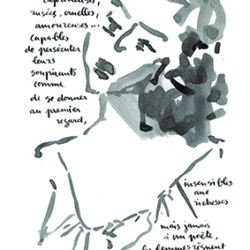 capricieuses,
rusées, cruelles,
amoureuses...
capables
de persécuter
leurs
soupirants
comme
de se donner
au premier
regard,
insensibles
aux
richesses
mais jamais
à un poète,
les femmes règnent